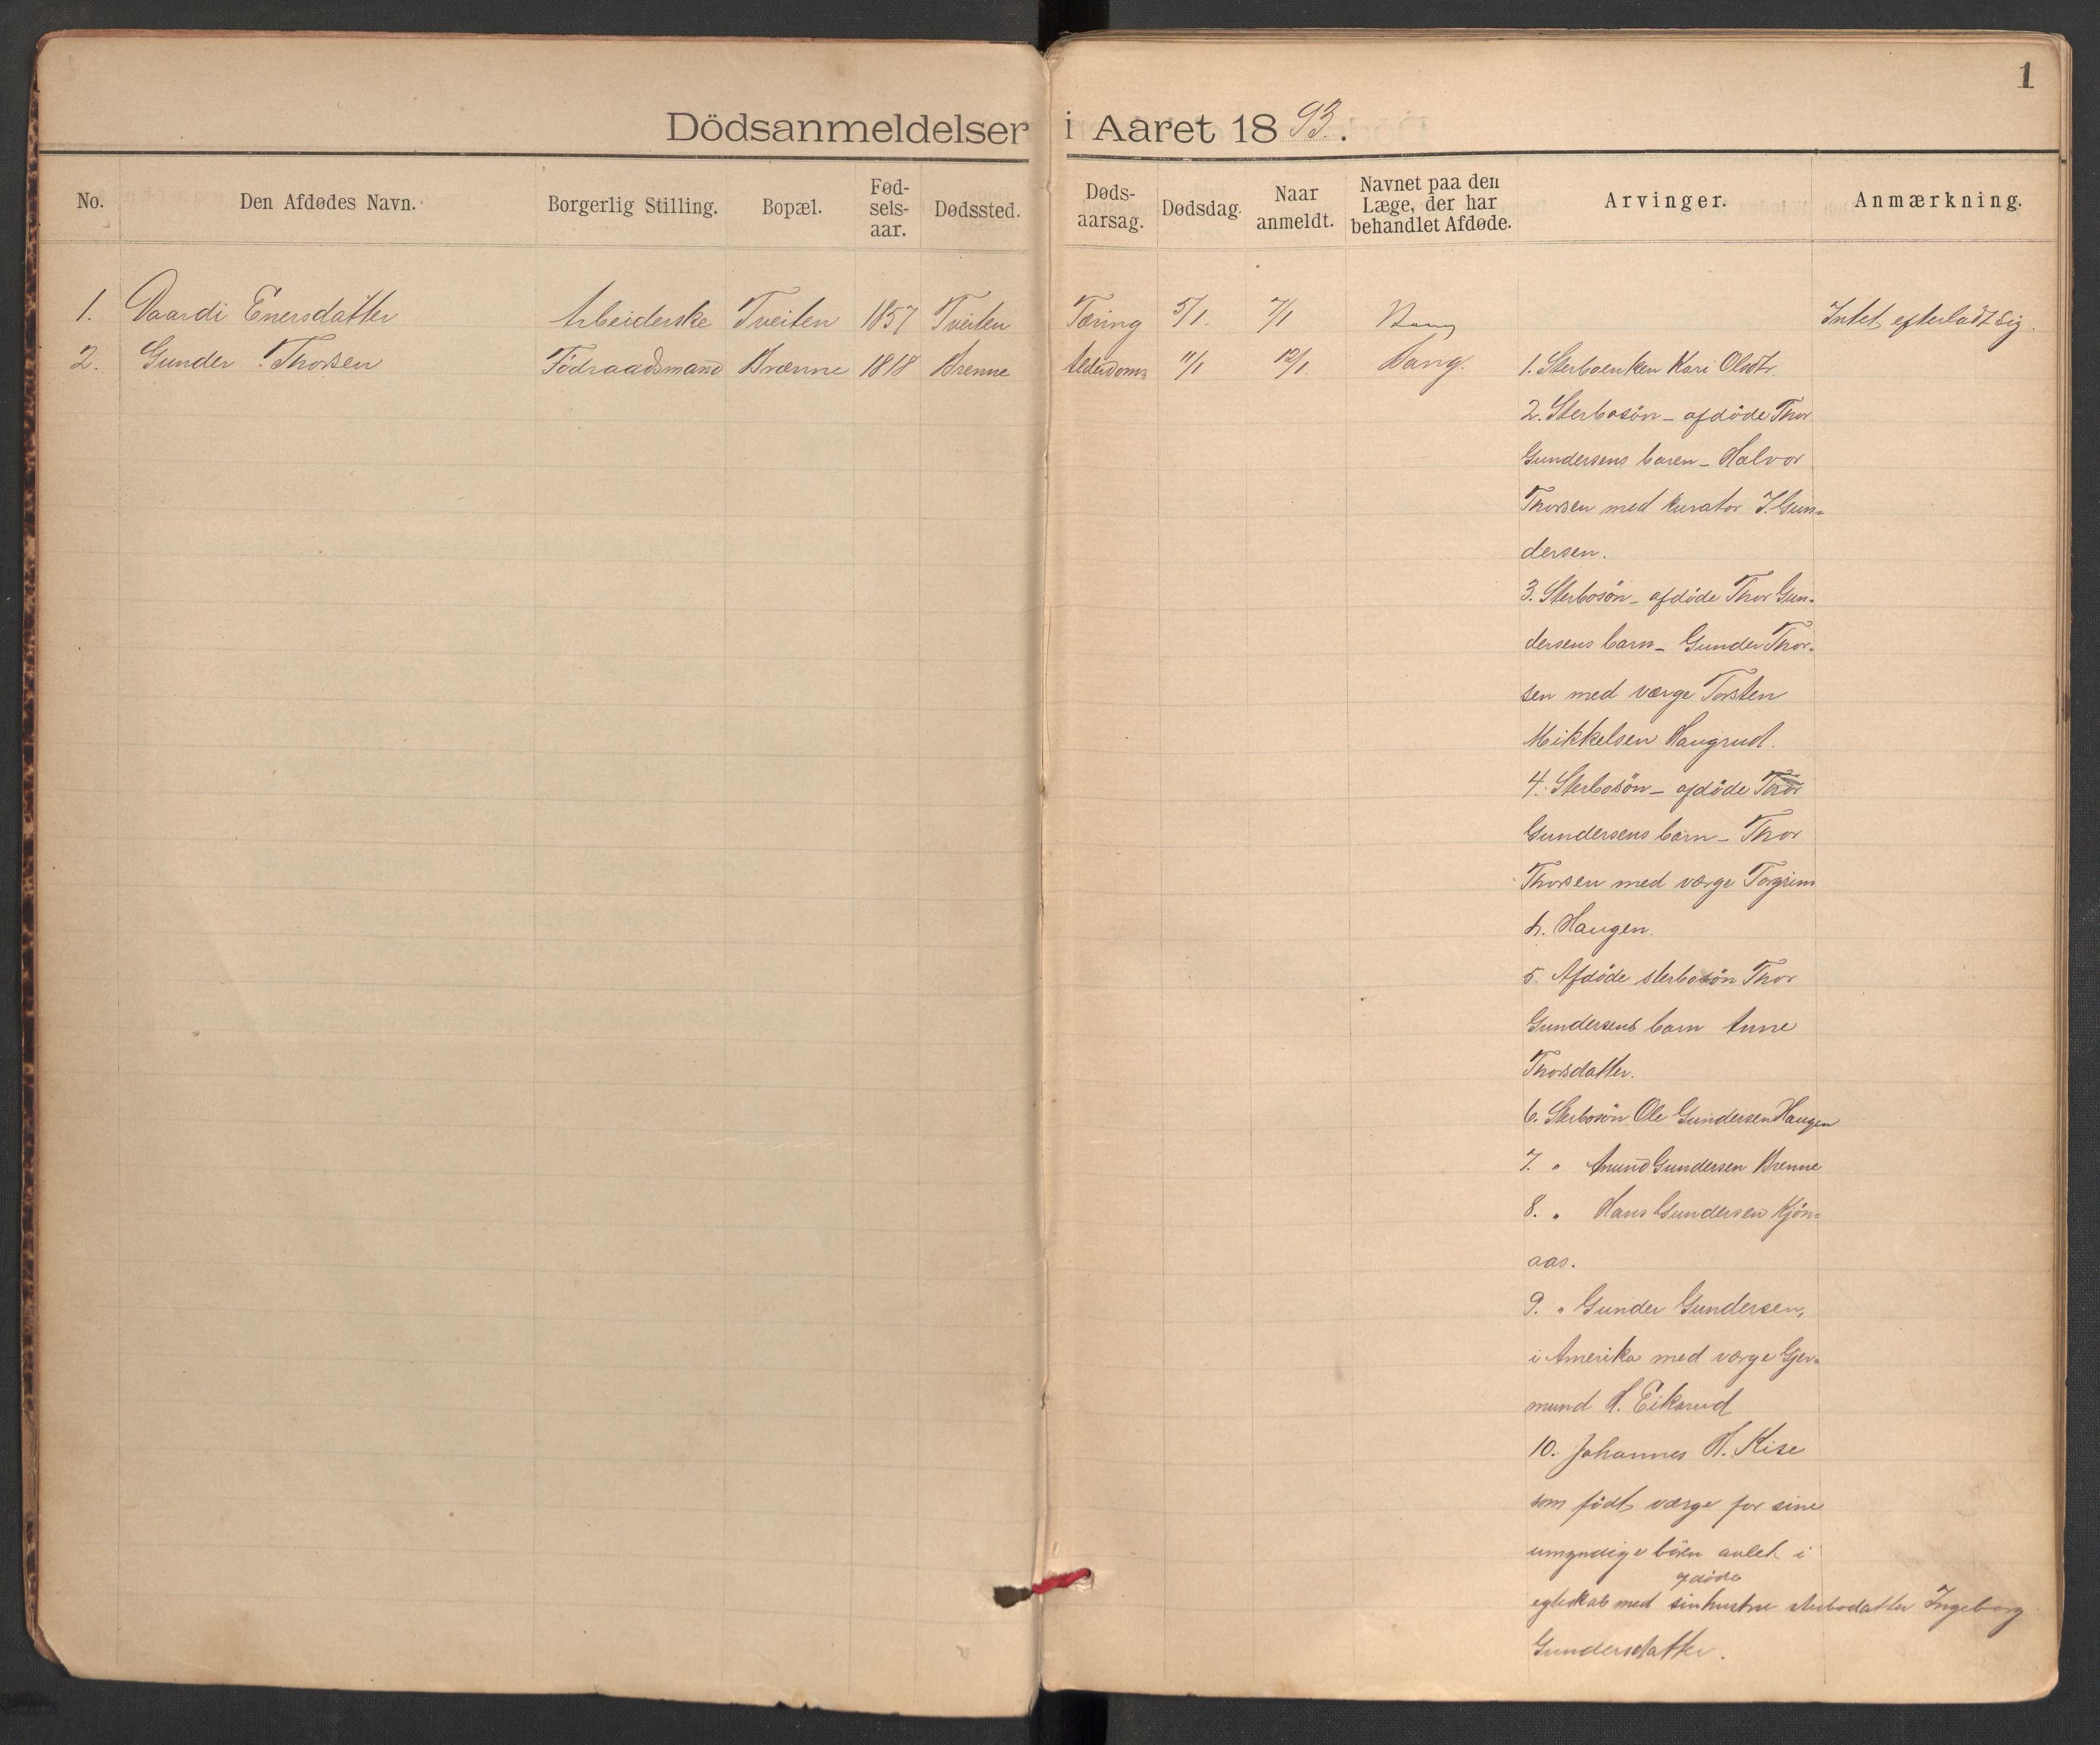 1
Dödsanmeldelser i Aaret 1893.
No. Den Afdødes Navn. Borgerlig Stilling. Bopæl. Fødselsaar. Dødssted. Dødsaarsag. Dødsdag. Naar anmeldt. Navnet paa den Læge, der har behandlet Afdøde. Arvinger. Anmærkning.
1. Enersdatter Arbeiderske Tveiten 1857 Tveiten Tæring 5/1. 7/1 Bang Intet efterladt sig.
2. Gunder Thorsen Födraadsmand Brenne 1818 Brenne Alderdom 11/1 12/1. Bang. 1. Sterboenken Kari Olsdtr.
2. Sterbosön - afdöde Thor
Gundersens barn - Halvor
Thorsen med kurator J. Gun-
dersen.
3. Sterbosön - afdöde Thor Gun-
dersens barn - Gunder Thor-
sen med værge Torsten
Mikkelsen Haugrud.
4. Sterbosön - afdöde Thor
Gundersens barn - Thor
Thorsen med værge Torgrim
A. Haugen.
5. Afdöde sterbosön Thor
Gundersens barn Anne
Thorsdatter.
6. Sterbosön Ole Gundersen Haugen
7. " Anund Gundersen Brenne
8. " Hans Gundersen Kjön-
aas.
9. " Gunder Gundersen,
i Amerika med værge Gjer-
mund H. Eikarud
10. Johannes H. Kise
som födt værge for sine
umyndige börn avlet i
afdöde
egteskab med sin hustru sterbodatter Ingeborg
Gundersdatter.